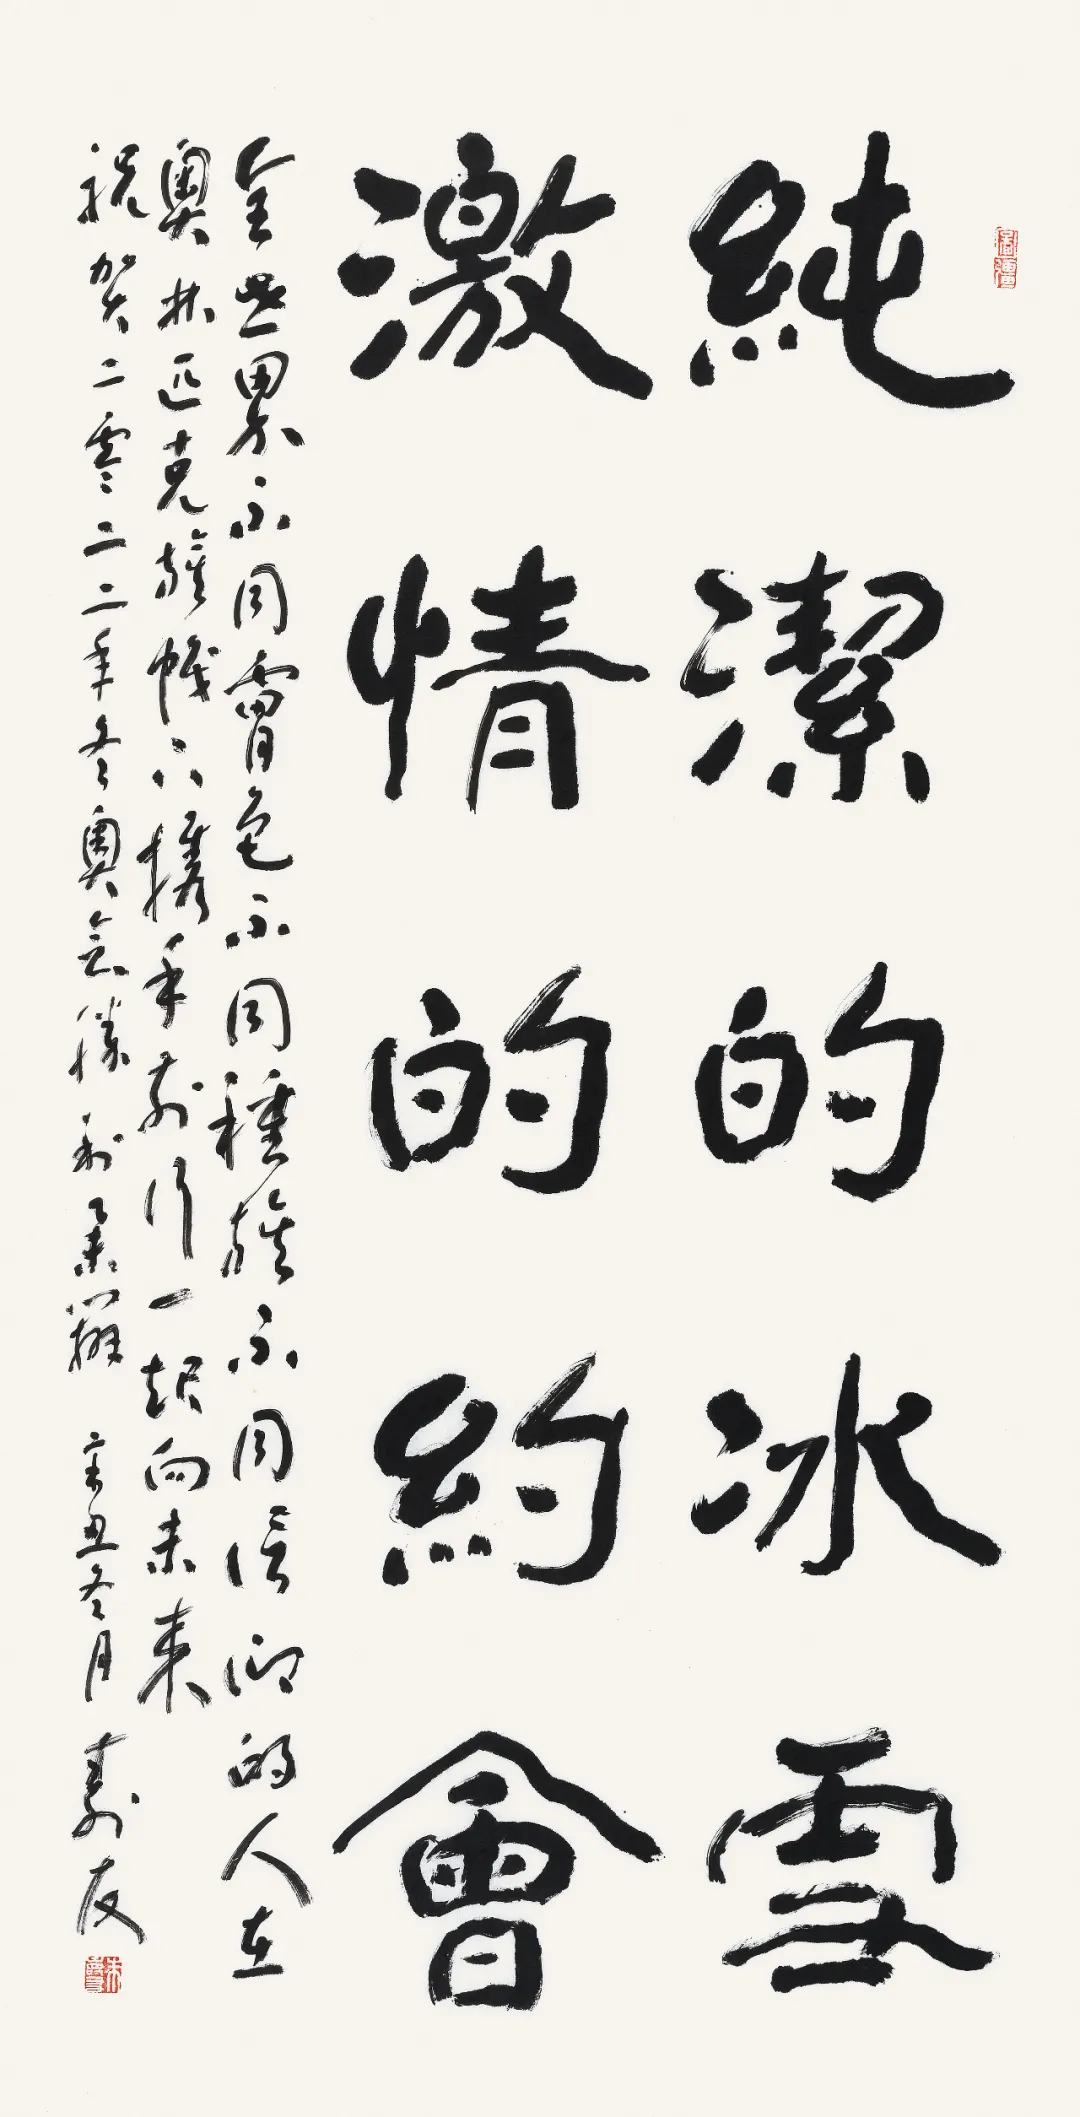 純潔的冰雪
激情的約會
全世界不同膚色不同種族不同信仰的人在
奧林匹克旗幟下攜手前行一起向未來
祝贺二零二二年冬奧会勝利舉辦 辛丑冬月 壽友